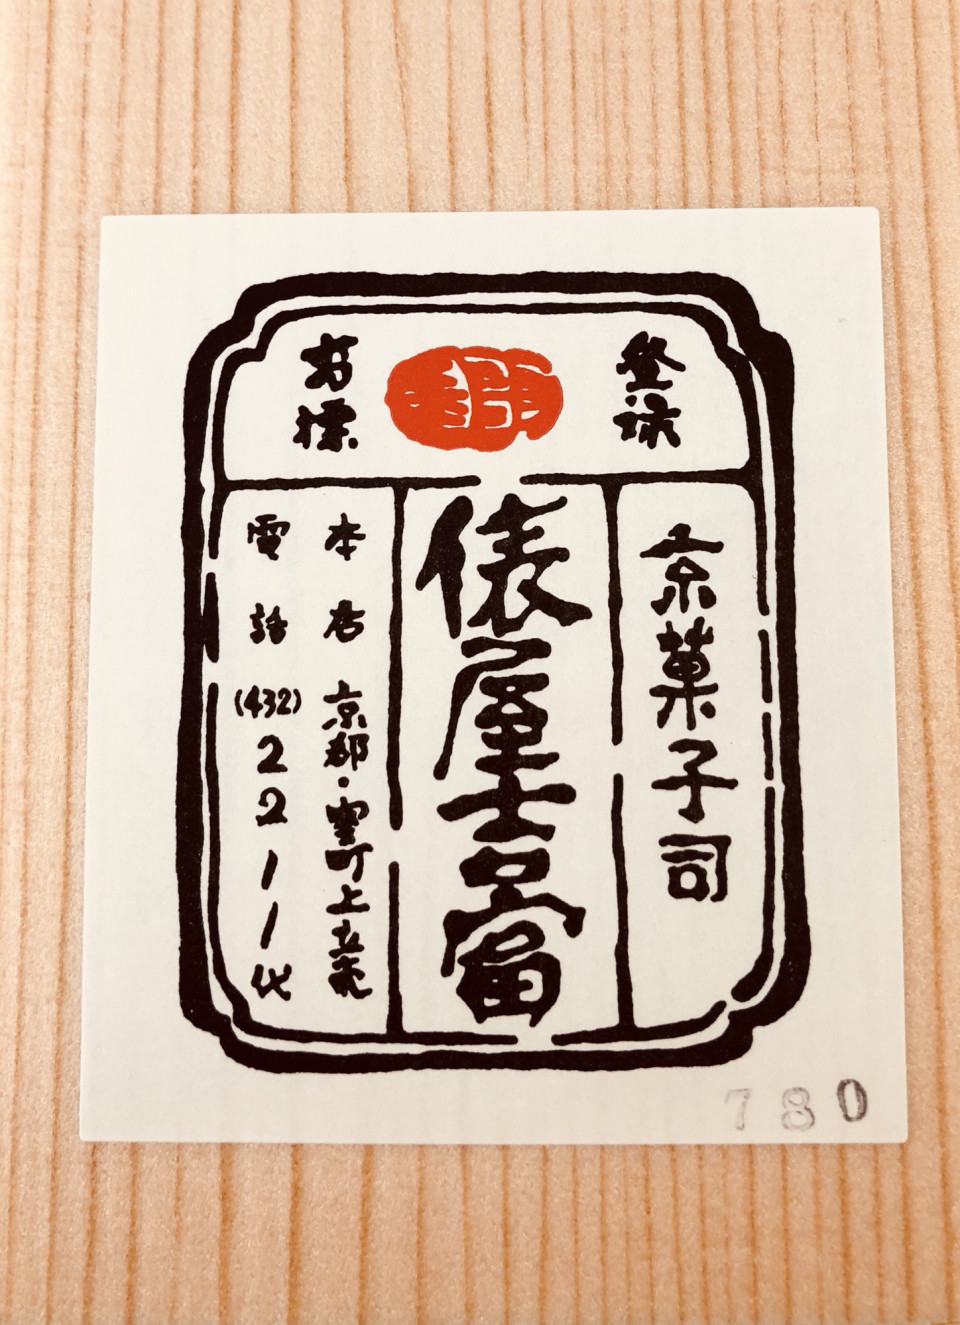 登録
商標
京菓子司
俵屋吉富
本店 京都・室町上立売
電話 (432) 2211代
780